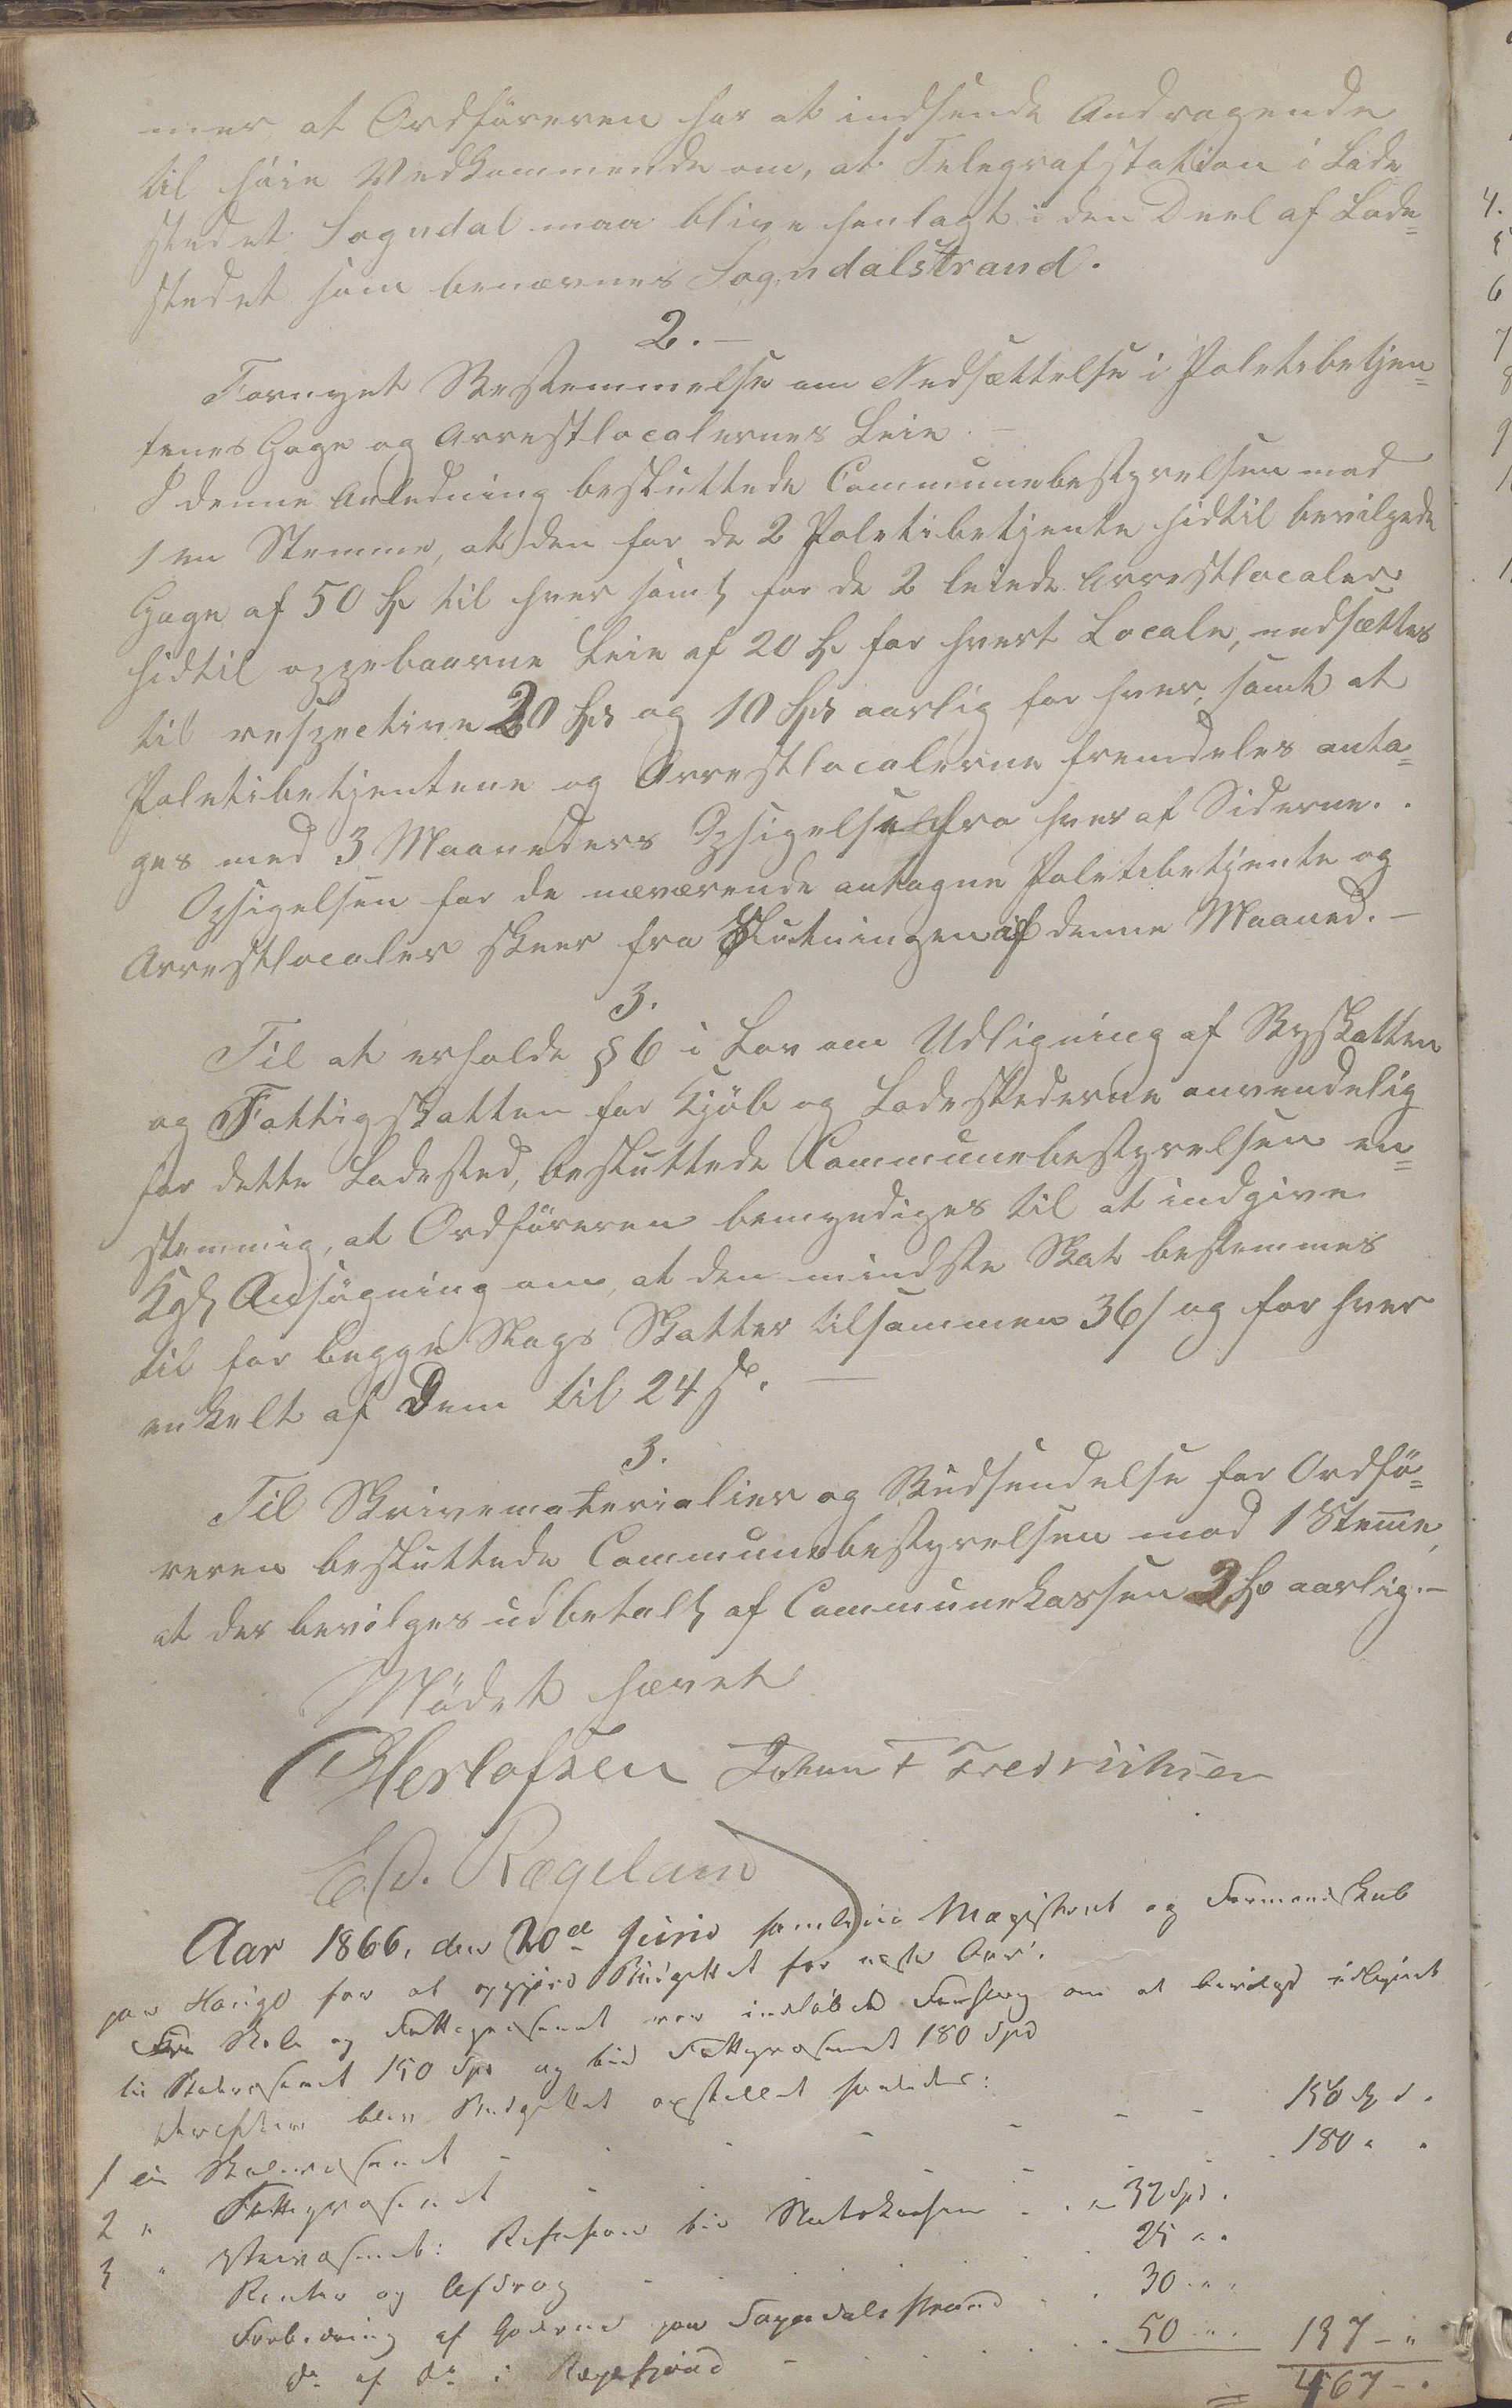 mer, at Ordföreren har at indsende Andragende
til höie Vedkommende om, at Telegrafstation i Lade
stedet Sogndal maa blive henlagt i den Deel af Lade=
stedet som benævnes Sogndalstrand.
2. –
Fornyet Bestemmelse om Nedsættelse i Politibetjen=
tenes Gage og Arrestlocalernes Leie. –
I denne Anledning besluttede Communebestyrelsen mod
1 en Stemme, at den for de 2 Politibetjente hidtil bevilgede
Gage af 50 Sp til hver samt for de 2 leiede Arrestlocaler
hidtil oppebaarne Leie af 20 Sp for hvert Locale, nedsættes
til respective 20 Spd og 10 Spd aarlig for hver, samt at
Politibetjentene og Arrestlocalerne fremdeles anta=
ges med 3 Maaneders Opsigelse fra hver af Siderne.
Opsigelsen for de nuværende antagne Politibetjente og
Arrestlocaler skeer fra Slutningen af denne Maaned. –
3.
Til at erholde § 6 i Lov om Udligning af Byskatten
og Fattigskatten for Kjöb og Ladestederne anvendelig
for dette Ladested, besluttede Communebestyrelsen en=
stemmig, at Ordföreren bemyndiges til at indgive
Kgl Ansögning om, at den mindste Skat bestemmes
til for begge Slags Skatter tilsammen 36 s og for hver
enkelt af Dem til 24 s. –
3.
Til Skrivematerialier og Budsendelse for Ordfö=
reren besluttede Communebestyrelsen mod 1 Stemme,
at der bevilges udbetalt af Communekassen 3 Sp aarlig. –
Mödet hævet
Herlofsen Johan F Fredrichsen
Ed. Rægeland
Aar 1866, den 20d Juni samledes Magistrat og Formandskab
paa Hauge for at opgjöre Budgettet for næste Aar.
Fra Skole og Fattigvæsenet var indlöbet Forslag om at bevilges udlignet
til Skolevæsenet 150 Spd og til Fattigvæsenet 180 Spd
Derefter blev Budgettet opstillet saaledes:
1 til Skolevæsenet – – – – – – 150 Spd.
2 " Fattigvæsenet – – – – – 180 " "
3 " Havnevæsenet: Refusion til Statskassen – – 32 Spd.
Renter og Afdrag – – – 25 " "
Forbedring af Gaderne paa Sogndalsstrand – 30 " "
do af do i Rægefjord – – – 50 " " 137 – "
467 – "